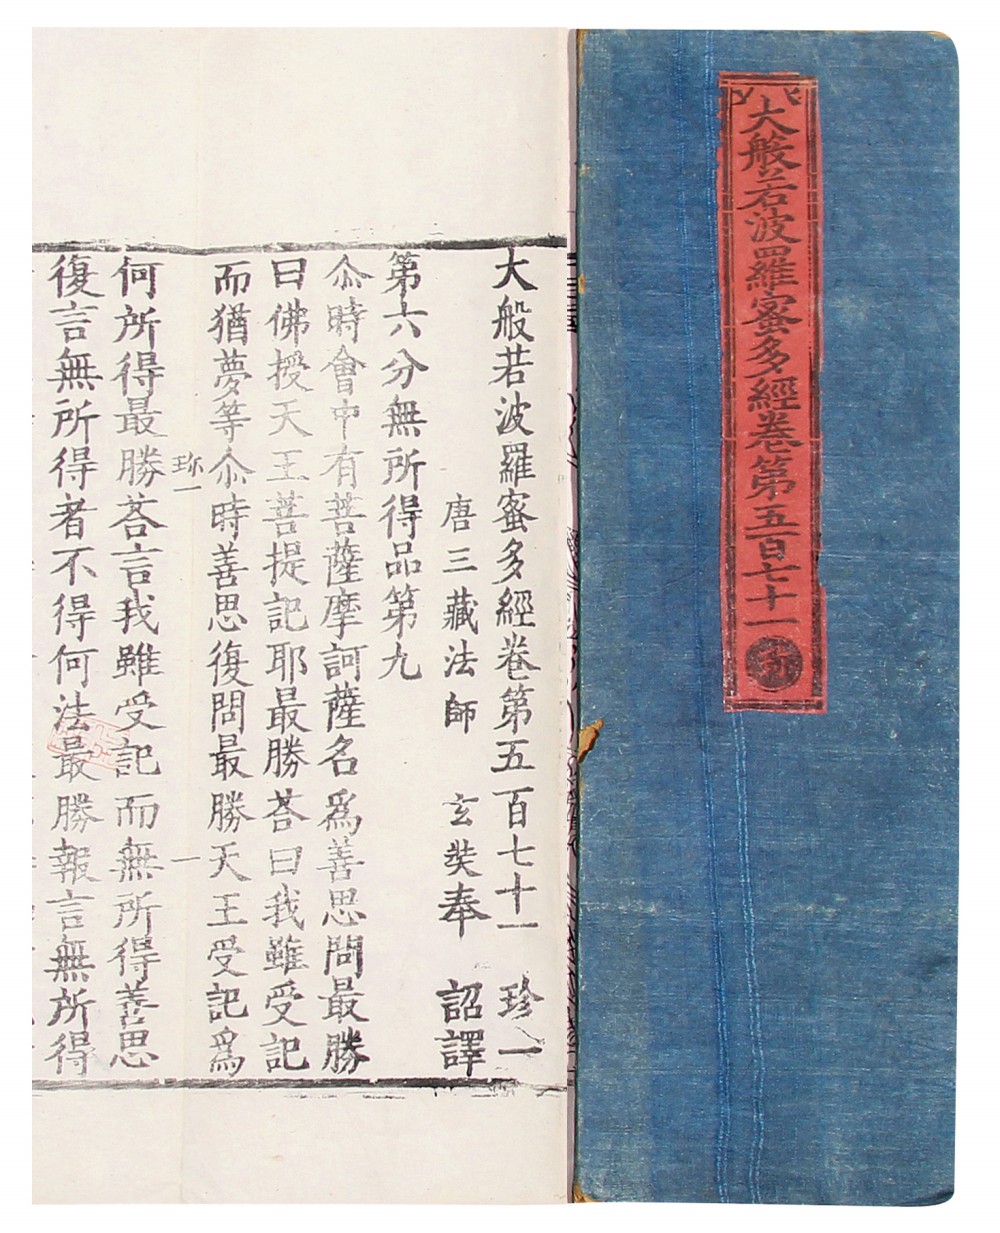 大般若波羅蜜多經卷第五百七十一
大般若波羅蜜多經卷第五百七十一 珍一
唐三藏法師 玄奘奉 詔譯
第六分無所得品第九
尒時會中有菩薩摩訶薩名爲善思問最勝
曰佛授天王菩提記耶最勝荅曰我雖受記
而猶夢等尒時善思復問最勝天王受記爲
珎一 一
何所得最勝荅言我雖受記而無所得善思
復言無所得者不得何法最勝報言無所得